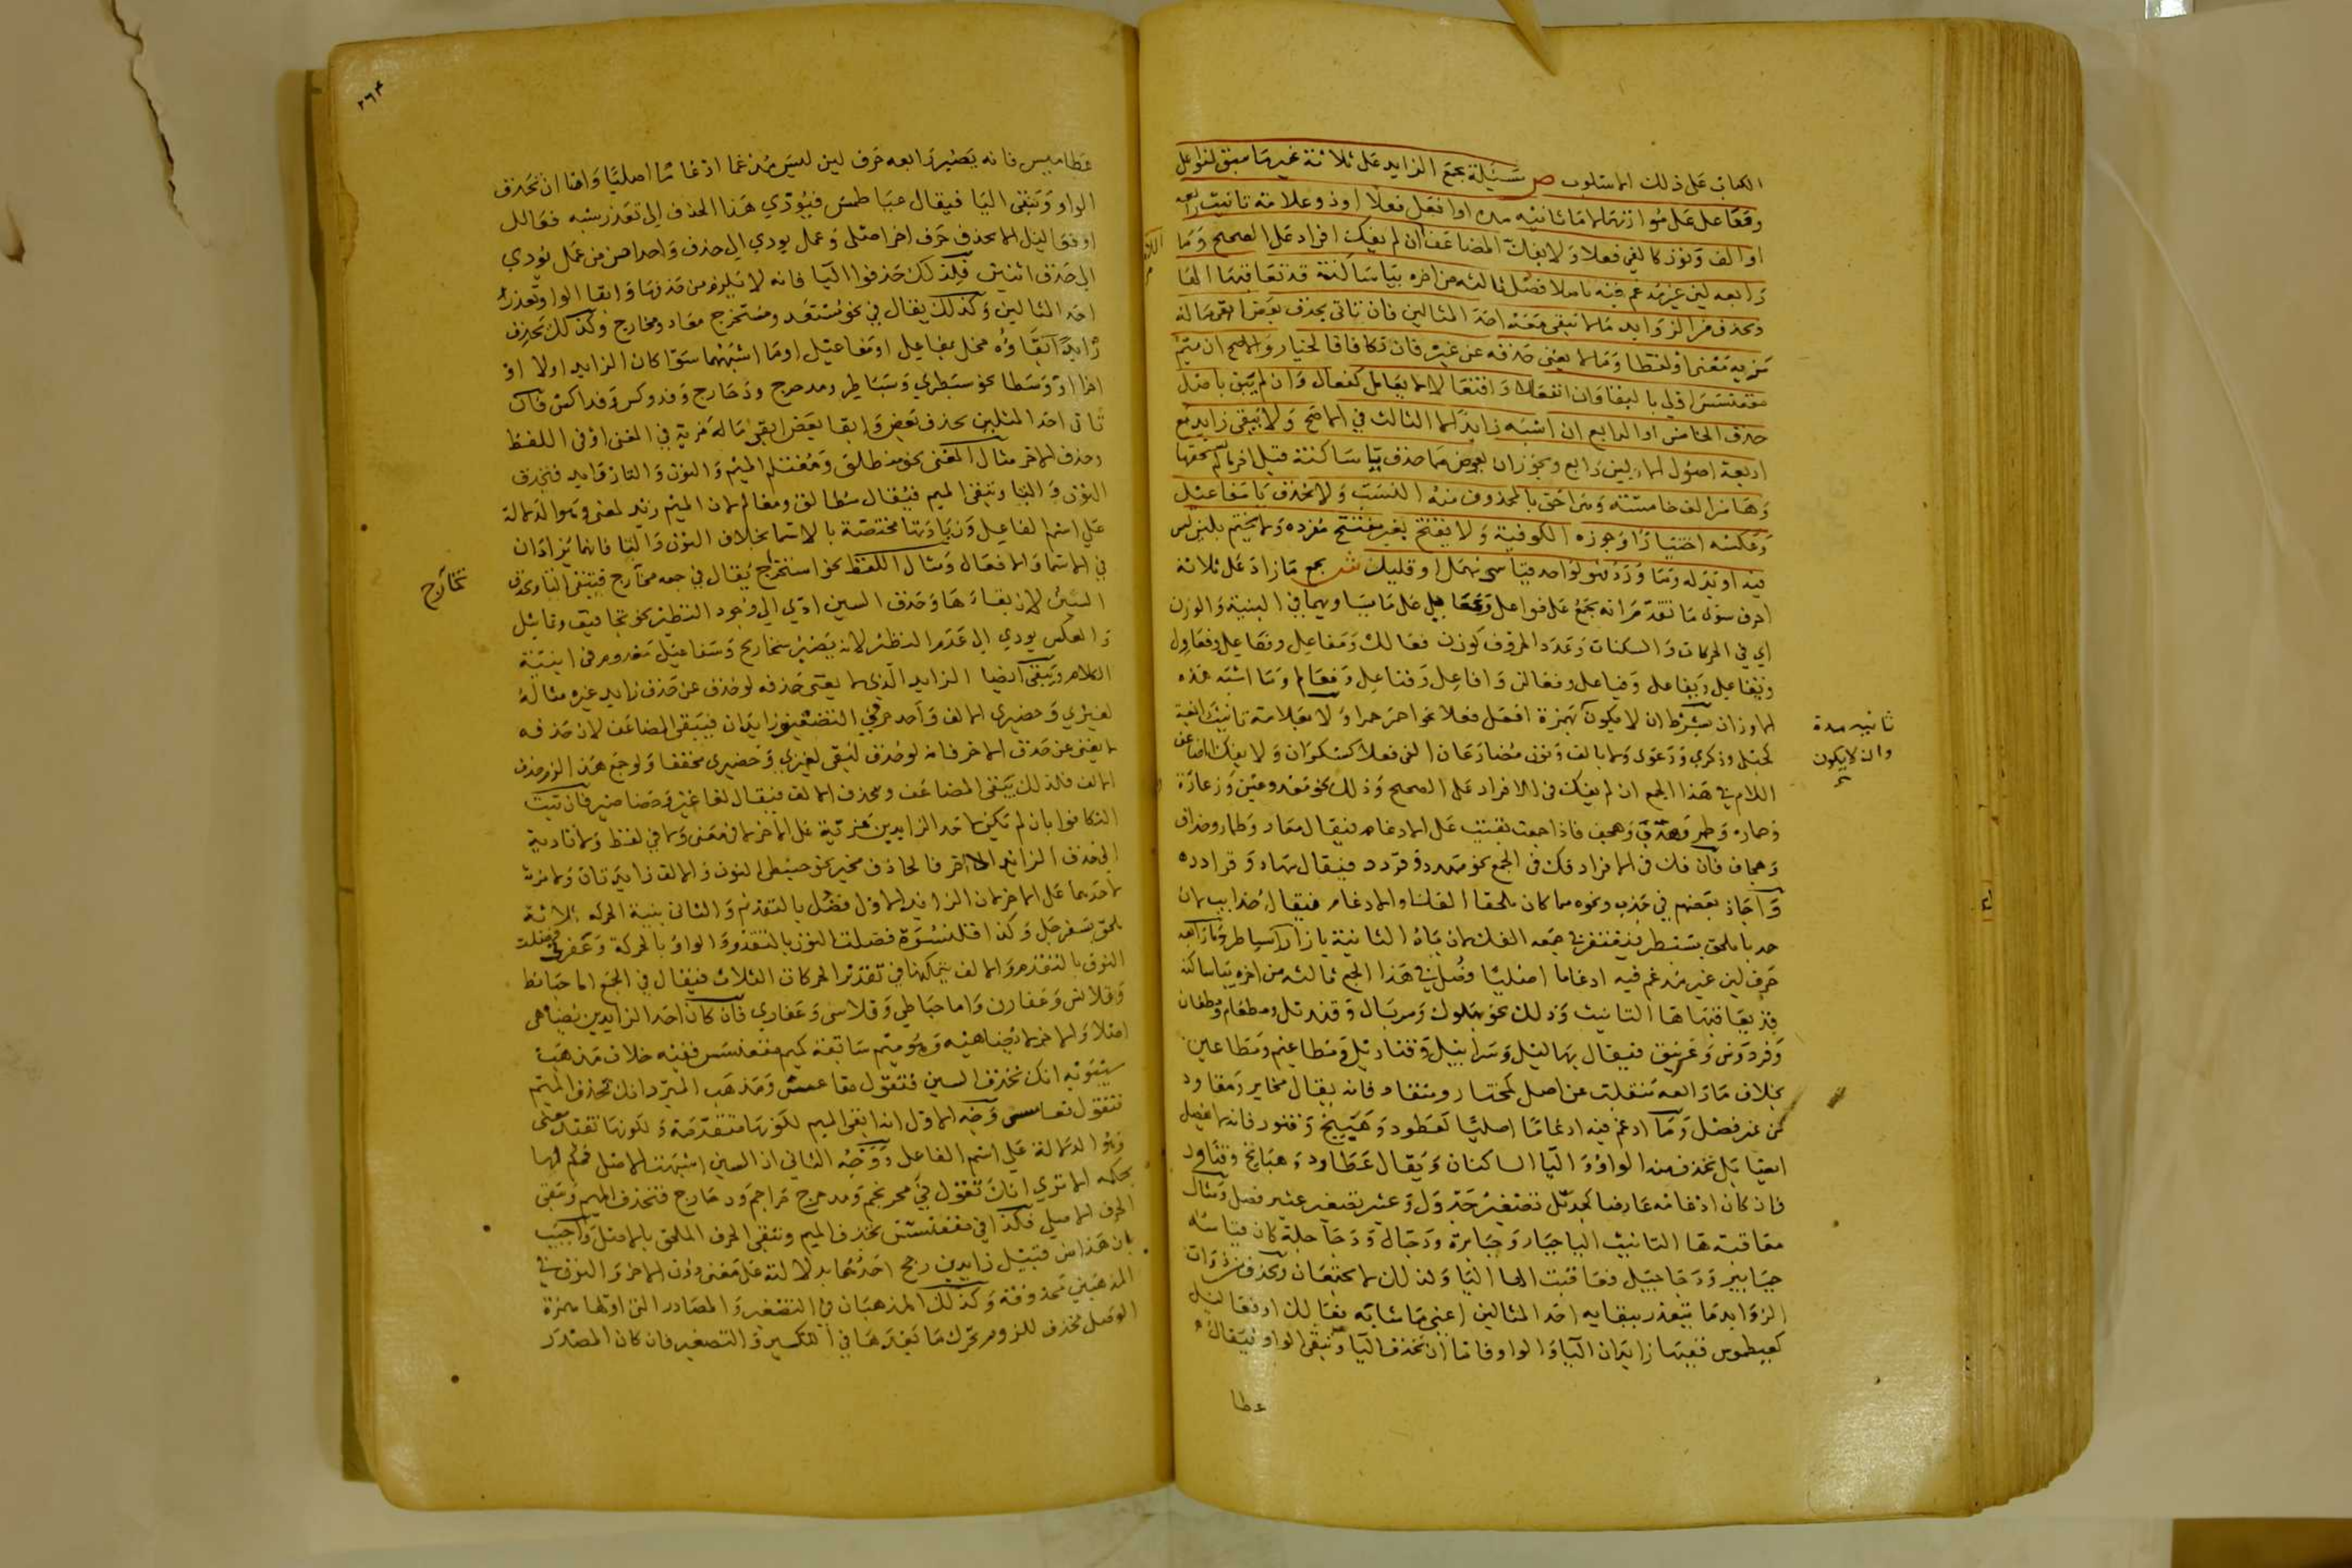 الكتاب على ذلك الاستلوب ص مسئلة يجمع الزايد على ثلاثة غير ما سبق لفواعل
وفعاعل على موازنهما اما ثانيه مده او افعل فعلا او ذو علامة تانيث رابعه
او الف ونون كالفي فعلا ولا يفك المضاعف ان لم يفك افراد على الصحيح وما
رابعه لين غير مدغم فيه فصل ثالثه من اخره بيا ساكنة قد تعاقبها الها
ويحذف من الزوايد ما لا تبقى معه احد المثالين فان تاتى بحذف بعض ابقى ما له
مزيه معنى او لفظا وما لا يغنى حذفه عن غيره فان تكافا فالخيار والاصح ان ميم
مقعنسس اولى بالبقا وان انفعالا وافتعالا لا يعامل كفعال وان لم يتق باصل
حذف الخامس او الرابع ان اشبه زايدا لا الثالث في الاصح ولا يبقى زايد مع
اربعة اصول الا لين رابع ويجوز ان يعوض مما حذف بيا ساكنة قبل اخر ما لم يستحقها
وها من الف خامسة وهي احق بالمحذوف منه النسب ولا تحذف يا مفاعيل
وعكسه اختيارا وجوزه الكوفية ولا يفتتح بغير مفتتح مفرده ولا يختم بلين ليس
فيه او بدله وما ورد فهو لواحد قياسي مهمل او قليل ش يجمع ما زاد على ثلاثة
احرف سوى ما تقدم انه يجمع على فواعل وفعاعيل على ما يساويهما في البنية والوزن
اي في الحركات والسكنات وعدد الحروف كوزن فعالل ومفاعل وفعاعل وفعاول
ويفاعل وفياعل وفعالن وافاعل وفناعل وفعالم وما اشبه هذه
الاوزان بشرط ان لا يكون بهمزة افعل فعلا نحو احمر حمرا ولا بعلامة تانيث رابعة
كحبلى وذكرى ودعوى ولا بالف ونون مضارعان الفي فعلا كسكران ولا يفك المضاعف
اللام في هذا الجمع ان لم يفك في الافراد على الصحيح وذلك نحو معد ومجن وزعارة
وحماره وطمر وهجف فاذا جمعت بقيت على الادغام فيقال معاد وطمار
وهجاف فان فك في الافراد فك في الجمع نحو مهدد وقردد فيقال مهادد وقرادد
واجاز بعضهم في خدب ونحوه مما كان ملحقا الفك والادغام فيقال خدابب لان
خدبا ملحق بسبطر فيغتفر في جمعه الفك لان باه الثانية بازا را سباطر وما رابعه
حرف لين غير مدغم فيه ادغاما اصليا فصل في هذا الجمع ثالثه من اخره بيا ساكنه
قد تعاقبها ها التانيث وذلك نحو بهلول وسربال وقنديل ومطعام ومطعان
وفردوس وغرنيق فيقال بهاليل وسرابيل وقناديل ومطاعيم ومطاعين
بخلاف ما رابعه منقلب عن اصل كمختار ومنقاد فانه يقال مخاير ومقاود
من غير فصل وما ادغم فيه ادغاما اصليا كعطود وهبيخ وقنور فانه لا يفصل
ايضا بل تحذف منه الواو واليا الساكنان ويقال عطاود وهبايخ وقناور
فان كان ادغامه عارضا كجديل تصغير جدول وعثير تصغير عثير فصل ومثال
معاقبة ها التانيث اليا جبار وجبابرة ودجال ودجاجلة كان قياسه
جبابير ودجاجيل فعاقبت الها اليا ولذلك لا يجتمعان ويحذف من ذوات
الزوايد ما يتعذر ببقايه احد المثالين اعني ما شابه فعالل او فعاليل
كعيطموس ففيها زايدان اليا والواو فاما ان تحذف اليا وتبقى الواو فيقال
عطا
ثانيه مدة
وان لا يكون
٢٦٤
عطاميس فانه يصير رابعه حرف لين ليس مدغما ادغاما اصليا واما ان تحذف
الواو وتبقى اليا فيقال عياطمس فيؤدي هذا الحذف الى تعذر شبه فعالل
او فعاليل الا بحذف حرف اخر اصلى وعمل يودي الى حذف واحد احسن من عمل يؤدي
الى حذف اثنين فلذلك حذفوا اليا فانه لا يلزم من حذفها وابقا الواو تعذر
احد المثالين وكذلك يقال في نحو مستعد ومستخرج معاد ومخارج وكذلك يحذف
زايد ابقاؤه مخل بمفاعل او مفاعيل او ما اشبههما سوا كان الزايد اولا او
اخرا او وسطا نحو سبطرى وسباطر ومدحرج ودحارج وفدوكس وفداكس فان
تاتى احد المثلين بحذف بعض وابقا بعض ابقى ما له مزية في المعنى او في اللفظ
وحذف الاخر مثال المعنى نحو منطلق ومغتلم الميم والنون والتا زوايد فتحذف
النون والتا وتبقى الميم فيقال مطالق ومغالم لان الميم زيد لمعنى وهو الدلالة
على اسم الفاعل وزيادتها مختصة بالاسما بخلاف النون والتا فانهما يزادان
في الاسما والافعال ومثال اللفظ نحو استخراج يقال في جمعه تخاريج فتبقى التا وتحذف
السين لان بقاءها وحذف السين ادى الى وجود النظير نحو تجافيف وتماثيل
والعكس يودي الى عدم النظير لانه يصير سخاريج وسفاعيل معدوم في ابنية
الكلام ويبقى ايضا الزايد الذي لا يغنى حذفه لو حذف عن حذف زايد غيره مثاله
لغيزى وخضيرى الالف واحد حرفي التضعيف زايدان فيبقى المضاعف لان حذفه
لا يغنى عن حذف الاخر فانه لو حذف لبقى لغيزى وخضيرى مخففا ولو جمع هذا لزم حذف
الالف فلذلك يبقى المضاعف وتحذف الالف فيقال لغاغيز وخضاضير فان ثبت
التكافوا بان لم تكن لاحد الزايدين مزية على الاخر لا في معنى ولا في لفظ ولا تادية
الى حذف الزايد الاخر فالحاذف مخير نحو حبنطى النون والالف زايدتان ولا مزية
لاحدهما على الاخر لان الزايد الاول فضل بالتقدم والثانى بنية الحركة ثلاثة
ملحق بسفرجل وكذا قلنسوة فضلت النون بالتقدم والواو بالحركة وعفرنى فضلت
النون بالتقدم والالف بتمكنها في تقدير الحركات الثلاث فيقال في الجمع اما حبانط
وقلانس وعفارن واما حباطي وقلاسي وعفاري فان كان احد الزايدين يضاهى
اصلا والاخر لا يضاهيه وهو ميم سابقة كميم مقعنسس ففيه خلاف مذهب
سيبويه انك تحذف السين فتقول مقاعس ومذهب المبرد انك تحذف الميم
فتقول قعاسس وجه الاول انه ابقى الميم لكونها متقدمة ولكونها تفيد معنى
وهو الدلالة على اسم الفاعل ووجه الثاني ان السين اشبهت الاصل فحكم لها
بحكمه الا ترى انك تقول في محرنجم ومدحرج حراجم ودحارج فتحذف الميم وتبقى
الحرف الاصلي فكذا في مقعنسس تحذف الميم وتبقى الحرف الملحق بالاصل واجيب
بان هذا من قبيل زايدين رجح احدهما بدلالته على معنى دون الاخر والنون في
المذهبين محذوفة وكذلك المذهبان في التصغير والمصادر التي اولها همزة
الوصل تحذف للزوم تحرك ما بعدها في التكسير والتصغير فان كان المصدر
تخاريج